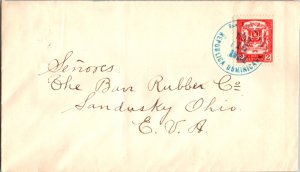 REPUBLICA DOMINICA
2 2
Señores.
The Barr Rubber Co
Sandusky Ohio.
E.V.A